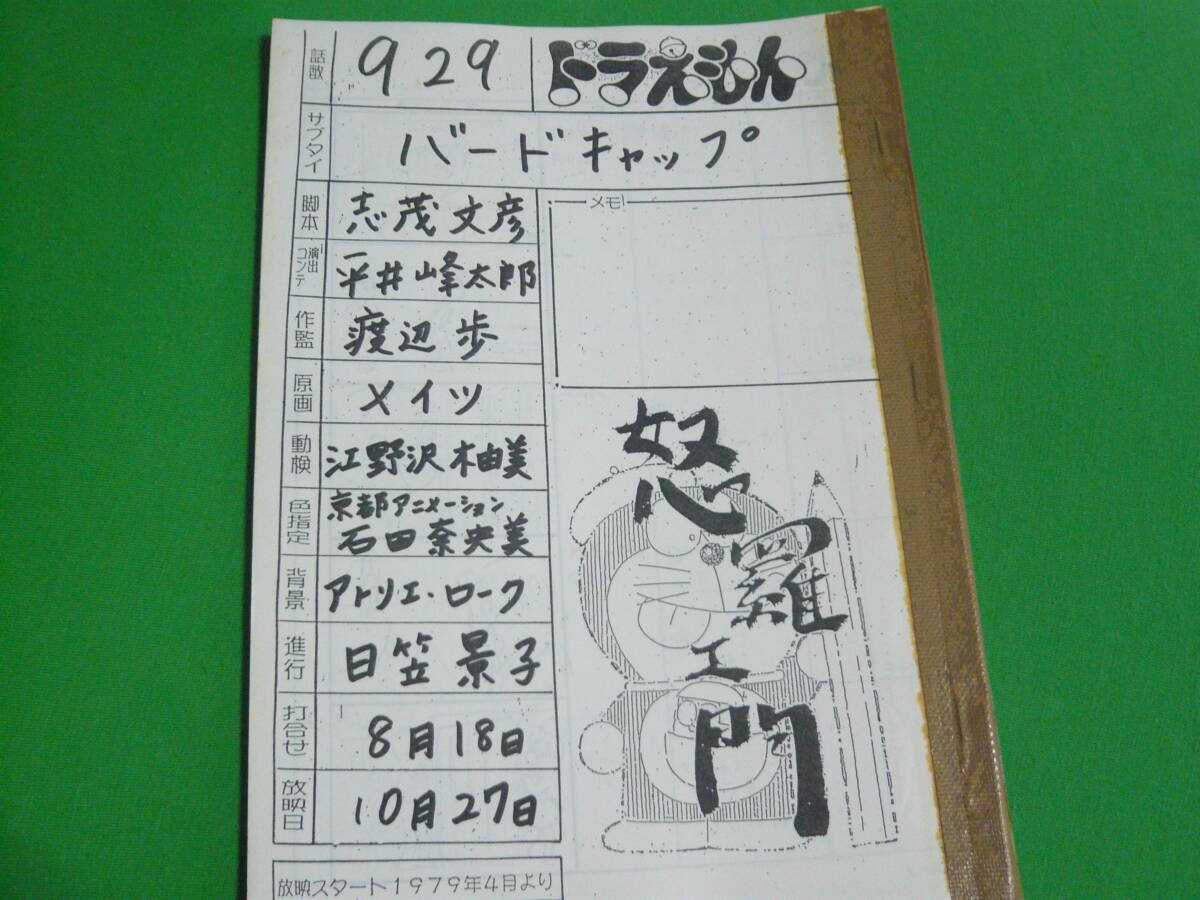 話数 929 ドラえもん
サブタイ バードキャップ
脚本 志茂文彦
メモ
演出 コンテ 平井峰太郎
作監 渡辺歩
原画 メイツ
動検 江野沢柚美
色指定 京都アニメーション
石田奈央美
背景 アトリエ・ローク
進行 日笠景子
打合せ 8月18日
放映日 10月27日
放映スタート1979年4月より
怒羅エ門